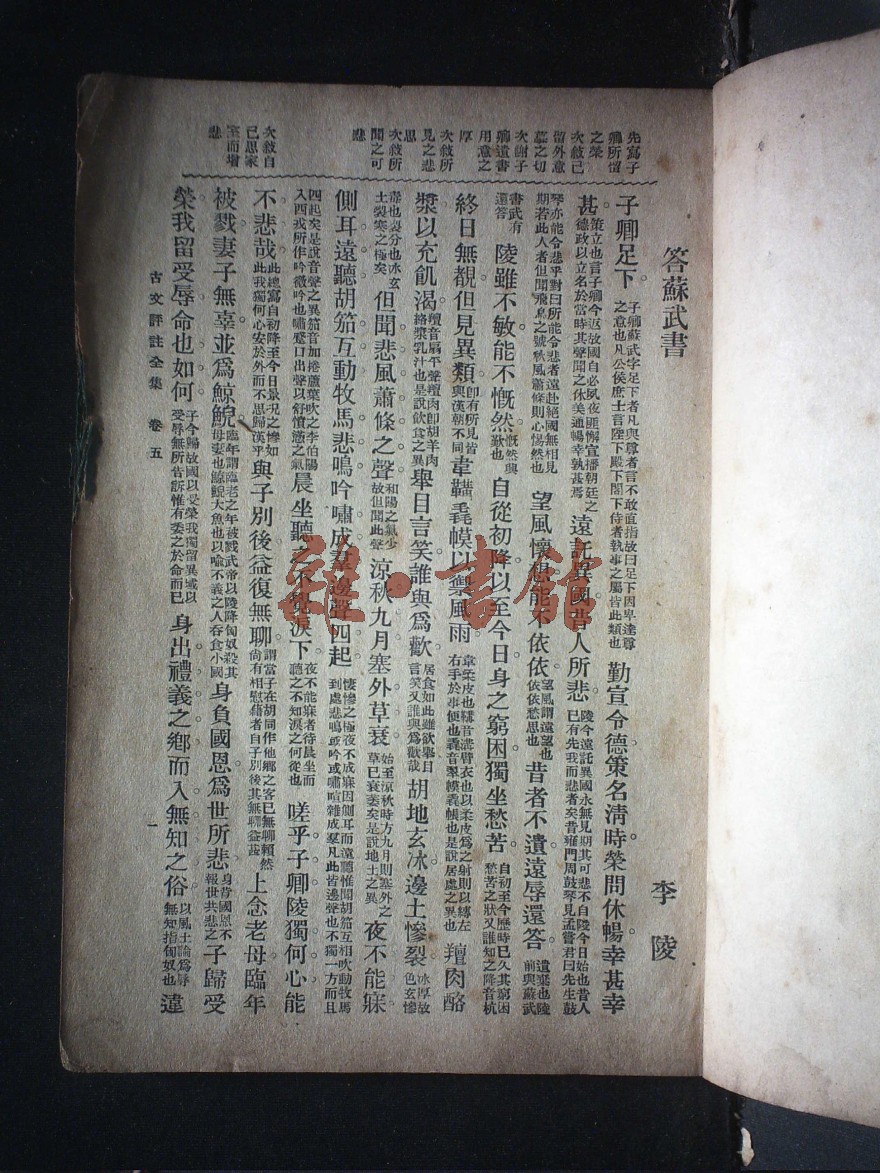 先寫子
卿所留
之榮
次敘己
留外意
墓之切
次謝子
卿遺書
用意之
厚
次敘所
見之悲
思
次敘所
聞之可
悲
次敘自
己思家
室而增
悲
答蘇武書 李陵
子卿足下。子卿蘇武字足下者凡與尊者言不敢直指故曰足下因卑達尊之意也凡公侯庶士言陛下殿下閣下侍者執事之屬皆此類也 勤宣令德策名淸時榮問休暢幸甚幸
甚。策立也言子卿今返故國自必夙夜匪懈宣播朝廷之德政以立名於當時其聲聞之休美通暢幸孰甚焉 遠託異國昔人所悲 陵今遠託異國永無見期其可悲不自陵今日始也昔人已有先我而悲者矣昔雍門周鼓琴見孟嘗君曰先生鼓
琴亦能令悲乎對曰所能令悲者遠赴絕國無相見期若此人者但聞飛鳥之號秋風蕭條則心惕然也 望風懷想能不依依 望風謂遠望也依依愁思也 昔者不遺遠辱還答 遺棄也陵前與蘇武
書武有還答 陵雖不敏能不慨然 慨然興歎也 自從初降以至今日身之窮困獨坐愁苦 自初至今歷時已久其窮困愁苦之狀又誰知之降音杭
終日無覩但見異類 卽有所見皆與漢朝不同 韋韝毳幙以禦風雨 韋柔皮也韝音溝臂衣也以柔皮爲之射則以縛左右手於事便也毳音翠幙氈帳也是說居處之異也 羶肉酪
漿以充飢渴 羶音扇平聲羶肉卽胡羊肉酪漿乳汁也是說飮食之異 舉目言笑誰與爲歡 居食如此雖欲舉目言笑又誰與爲歡哉 胡地玄冰邊土慘裂 冰厚故色玄慘
毒也裂分也冰玄土裂寒之極矣 但聞悲風蕭條之聲 和陽之氣少故但聞此聲 涼秋九月塞外草衰 始至涼秋時方九月則塞外之草已衰萎矣是說地土之異 夜不能寐
側耳遠聽胡笳互動牧馬悲鳴吟嘯成羣邊聲四起 悽慘之極夜不成寐因側耳而遠聽惟聞胡笳互相吹動牧馬到處悲鳴或吟或嘯喧雜成羣凡此皆邊聲也不獨一方而且
四起矣是說音聲之異笳音加捲蘆葉吹之李伯陽入西戎所作吟微吟也嘯蹙口出聲以舒憤懣之氣 晨坐聽之不覺淚下 夜不能寐者待晨坐而聽之不知淚之何從也 嗟乎子卿陵獨何心能
不悲哉 此總寫自初降至今日景況之慘如此我獨何心安於外而不思歸漢乎 與子別後益復無聊 謂當子在胡同作他鄉之客已無聊賴然尚有相慰藉者自子別後其無聊益甚 上念老母臨年
被戮妻子無辜並爲鯨鯢 臨年謂臨老之年被戮武帝以陵降匈奴殺其母妻也鯨鯢大魚也以喻不義之人吞食小國 身負國恩爲世所悲 身背國恩不報世共悲之 子歸受
榮我留受辱命也如何 子今歸故國以受榮我獨留異域以受辱無所告訴惟有委之於命而已 身出禮義之鄕而入無知之俗 以風土論爲辱無知指匈奴也 違
古文評註全集 卷五 一
雒·書館